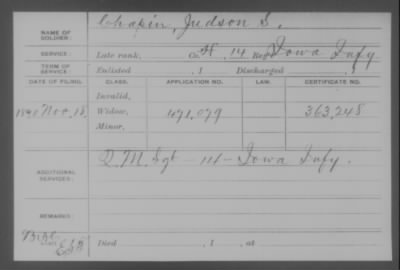 NAME OF SOLDIER: Chapin, Judson S.
SERVICE: Late rank, Co. H, 14 Reg't Iowa Infy
TERM OF SERVICE: Enlisted , 1 Discharged , 1
DATE OF FILING. CLASS. APPLICATION NO. LAW. CERTIFICATE NO.
Invalid,
1890 Nov. 18, Widow, 471,079 363,248
Minor,
ADDITIONAL SERVICES: Q.M. Sgt - 14 - Iowa Infy.
REMARKS:
Died , 1 , at